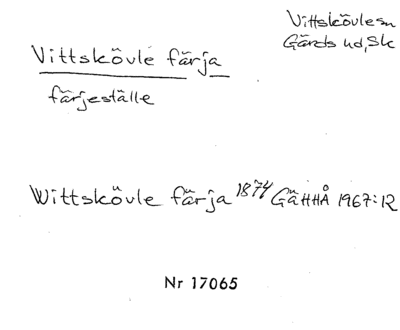 Vittskövlesn
Gärds hd, Sk
Vittskövle färja
färjeställe
Wittsköfle färja 1874 GäHHÅ 1967:12
Nr 17065